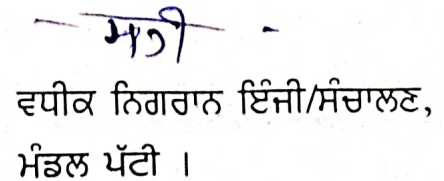 ਵਧੀਕ ਨਿਗਰਾਨ ਇੰਜੀ/ਸੰਚਾਲਣ,
ਮੰਡਲ ਪੱਟੀ ।